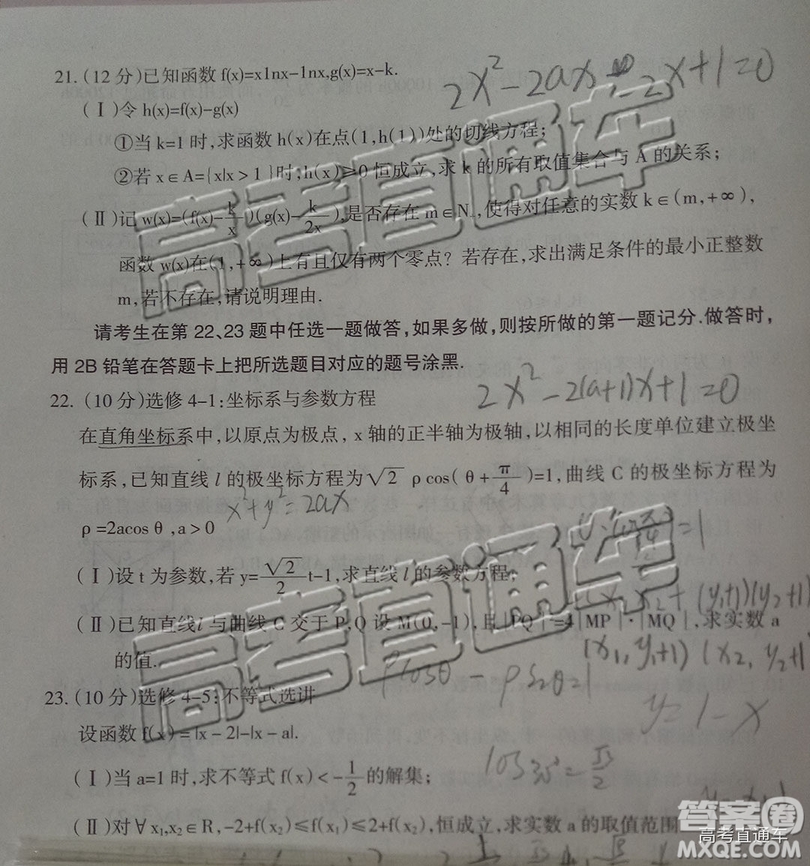 21.(12分)已知函数f(x)=xlnx-lnx,g(x)=x-k.
2x²-2ax-2x+1=0
(Ⅰ)令h(x)=f(x)-g(x)
①当k=1时,求函数h(x)在点(1,h(1))处的切线方程;
②若x∈A={x|x>1}时,h(x)≥0恒成立,求k的所有取值集合与A的关系;
(Ⅱ)记w(x)=(f(x)-k/x)(g(x)-k/2x),是否存在m∈N,使得对任意的实数k∈(m,+∞),
函数w(x)在(1,+∞)上有且仅有两个零点?若存在,求出满足条件的最小正整数
m,若不存在,请说明理由.
请考生在第22、23题中任选一题做答,如果多做,则按所做的第一题记分.做答时,
用2B铅笔在答题卡上把所选题目对应的题号涂黑.
22.(10分)选修4-1:坐标系与参数方程
2x²-2(a+1)x+1=0
在直角坐标系中,以原点为极点,x轴的正半轴为极轴,以相同的长度单位建立极坐
标系,已知直线l的极坐标方程为√2 ρcos(θ+π/4)=1,曲线C的极坐标方程为
ρ=2acosθ,a>0
x²+y²=2ax
(Ⅰ)设t为参数,若y=√2/2 t-1,求直线l的参数方程;
x₁x₂+(y₁+1)(y₂+1)
(Ⅱ)已知直线l与曲线C交于P,Q设M(0,-1),且|PQ|²=4|MP|·|MQ|,求实数a
的值.
(x₁,y₁+1)(x₂,y₂+1
23.(10分)选修4-5:不等式选讲
y=1-x
设函数f(x)=|x-2|-|x-a|.
(Ⅰ)当a=1时,求不等式f(x)<-1/2的解集;
(Ⅱ)对∀x₁,x₂∈R,-2+f(x₂)≤f(x₁)≤2+f(x₂),恒成立,求实数a的取值范围
高考直通车
高考直通车
答案圈
高考直通车
MXQE.COM